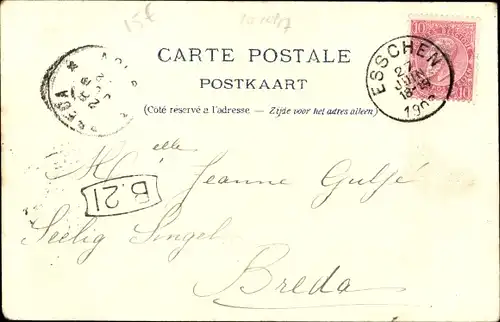 15€
CARTE POSTALE
POSTKAART
(Côté réservé a l'adresse — Zijde voor het adres alleen)
10 10
ESSCHEN
BREDA
Melle Jeanne Guljé
B.21
Seelig Singel
Breda